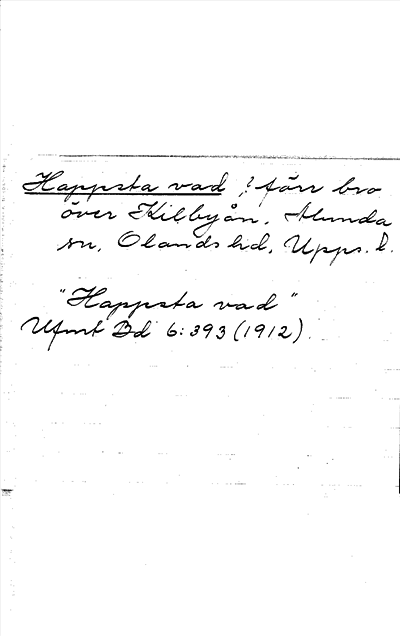 Happsta vad ? förr bro
över Kilbyån, Alunda
sn, Olands hd, Upps. l.
"Happsta vad"
Ufmt Bd 6:393 (1912).